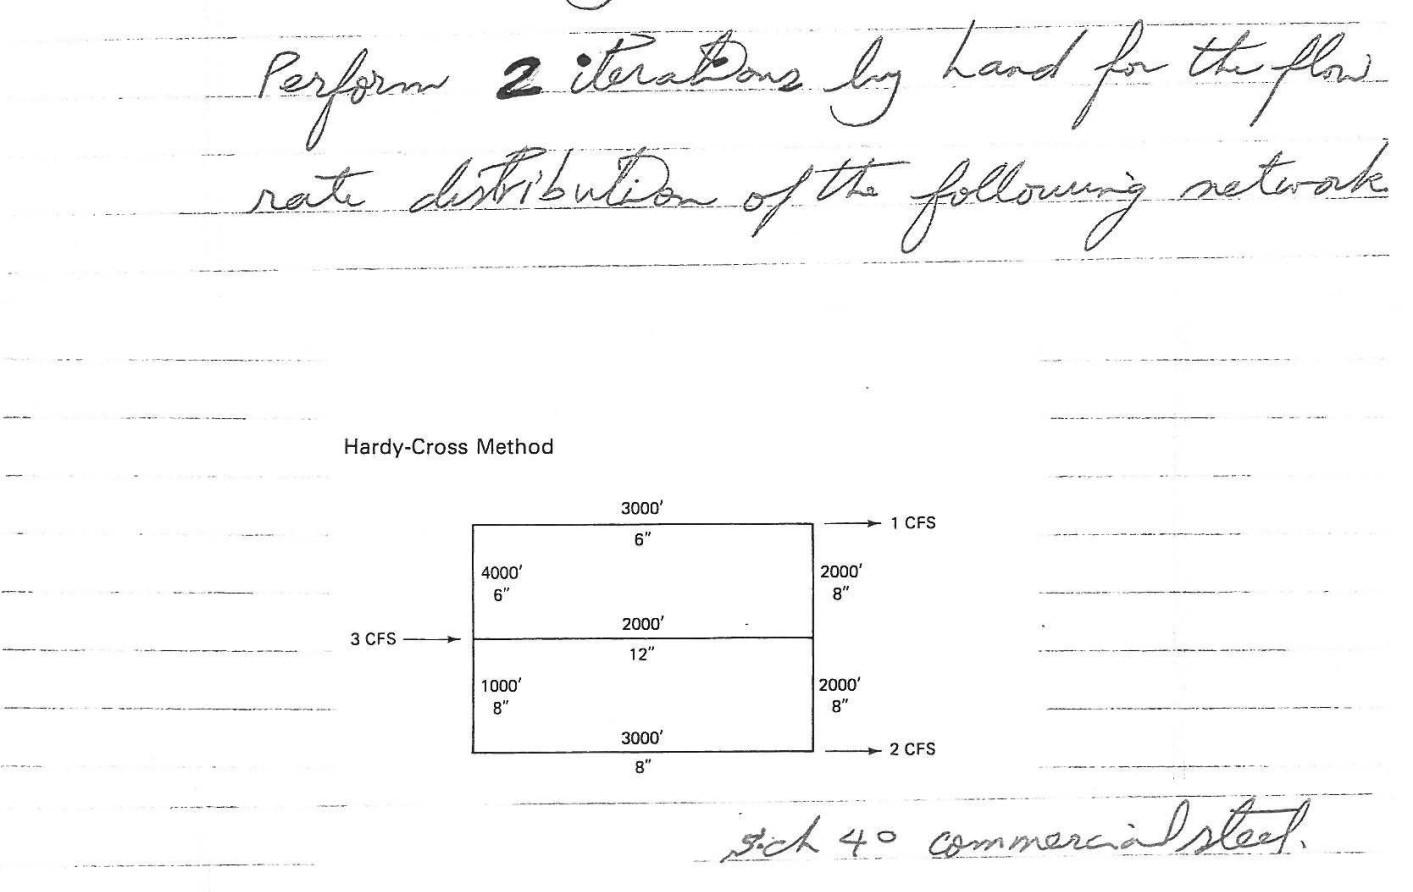 Perform 2 iterations by hand for the flow
rate distribution of the following network
Hardy-Cross Method
3000'
1 CFS
6"
4000'
6"
2000'
8"
2000'
3 CFS
12"
1000'
8"
2000'
8"
3000'
2 CFS
8"
sch 40 commercial steel.